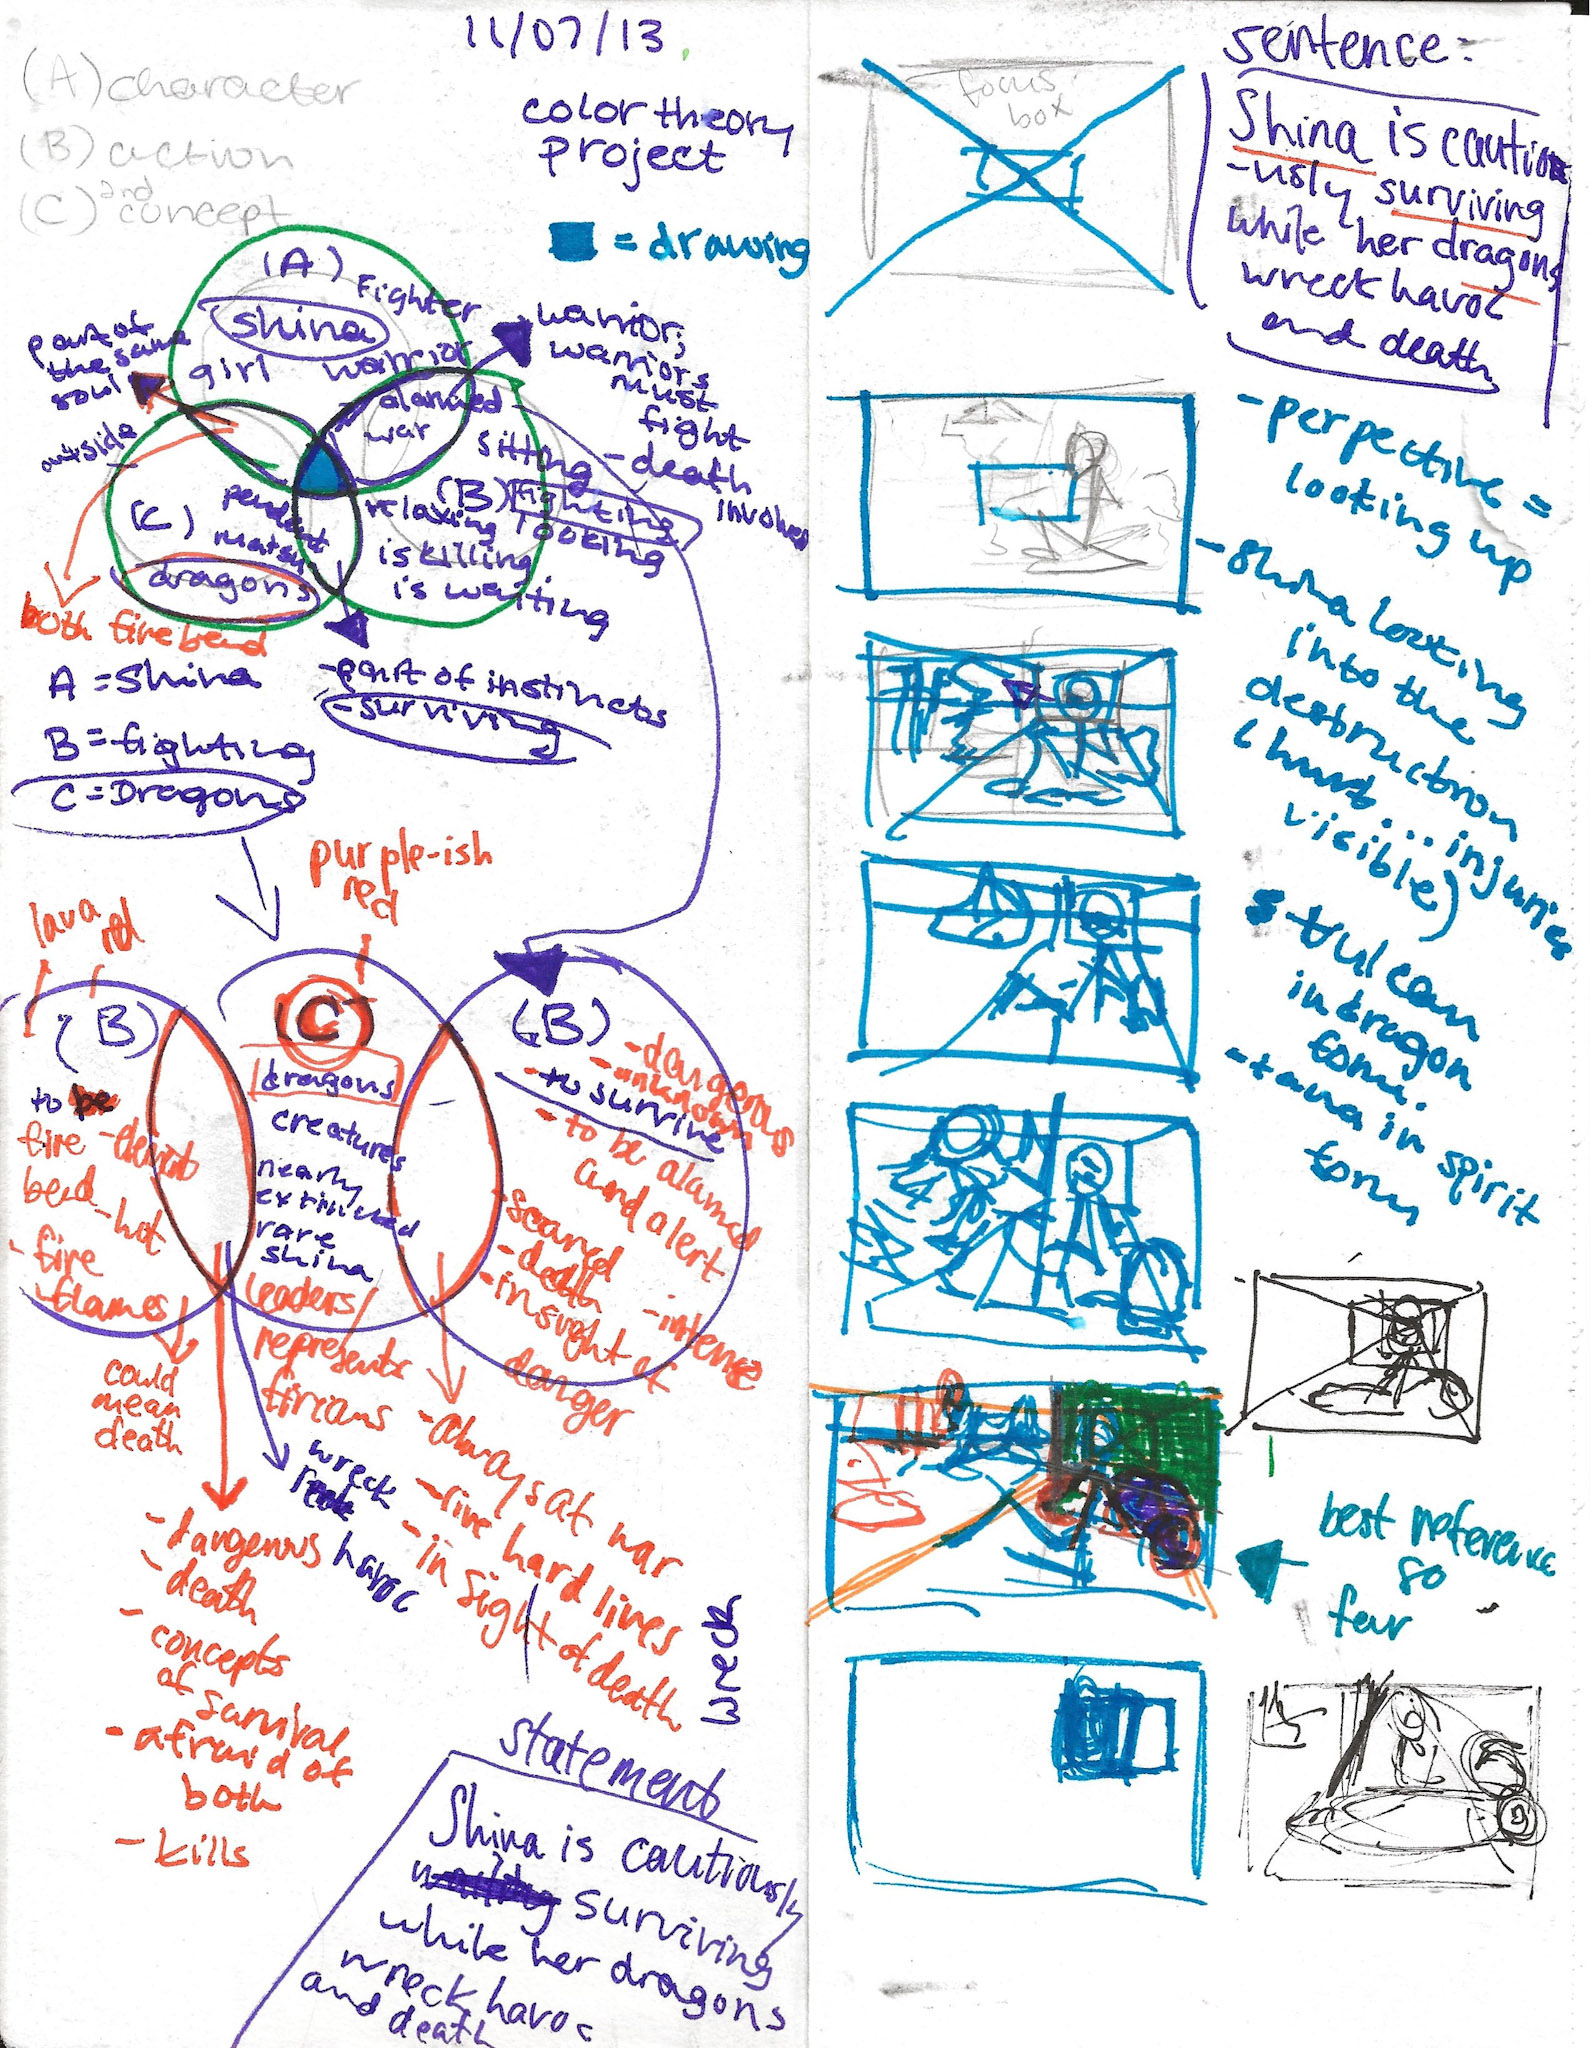 11/07/13
(A) character
(B) action
(C) 2nd concept
color theory
project
= drawing
(A)
Fighter
Shina
girl
warrior
part of
the same
soul
outside
alarmed
war
sitting
(B) fighting
relaxing looking
is killing
is waiting
(C)
pendant
dragons
warrior;
warriors
must
fight
- death
involved
both firebend
A = Shina
B = fighting
C = Dragons
- part of instincts
- surviving
purple-ish
red
lava red
(B)
to be
fire
bend - hot
- fire
- flames
could
mean
death
C
dragons
creatures
nearly
rare
shina
leaders/
represents
firians
(B)
- dangerous
- unknown
- to survive
- to be alarmed
and alert
- scared
- death
- insight of
danger
- intense
wreck
havoc
- always at war
- live hard lines
- in sight of death
- dangerous
- death
- concepts
of survival
- afraid of
both
- kills
wreck
statement
Shina is cautiously
surviving
while her dragons
wreck havoc
and death
focus
box
sentence:
Shina is cautio
-usly surviving
while her dragons
wreck havoc
and death
- perpective =
looking up
- Shina looking
into the
destruction
(hurt... injuries
visible)
- tulcan
in dragon
form.
- tana in spirit
form
best reference
so
far